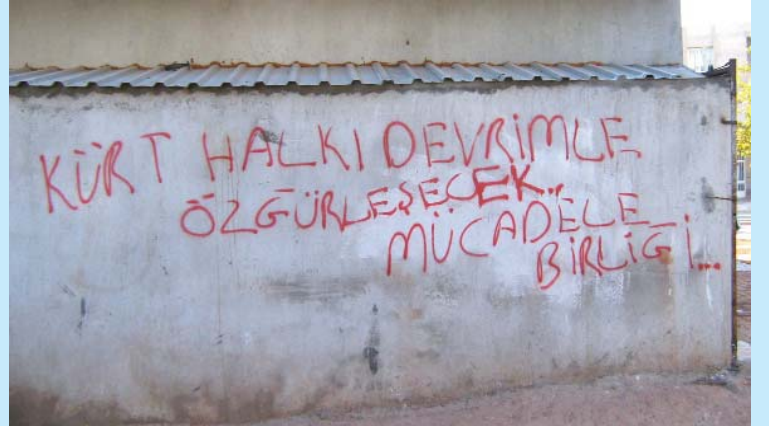 KÜRT HALKI DEVRİMLE
ÖZGÜRLEŞECEK..
MÜCADELE
BİRLİĞİ...